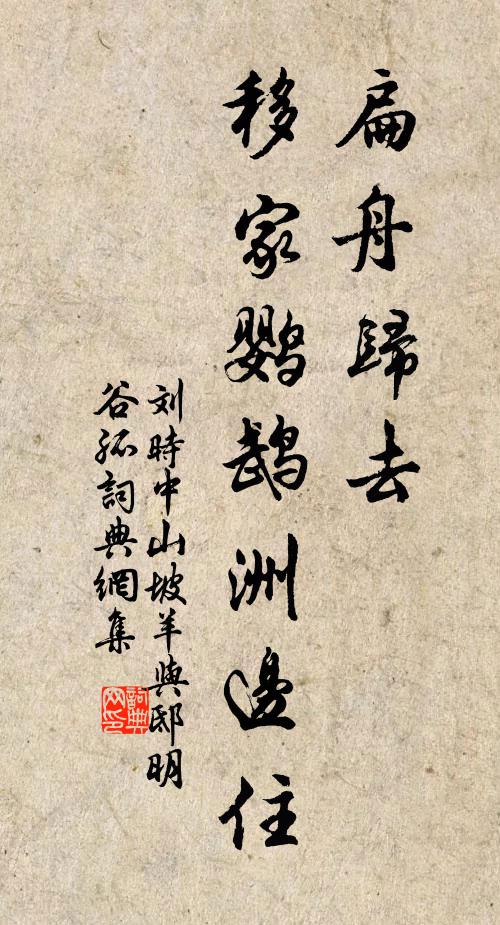 扁舟歸去
移家鹦鵡洲邊住
刘時中山坡羊與邸明
谷孤詞典網集
詞典
网印